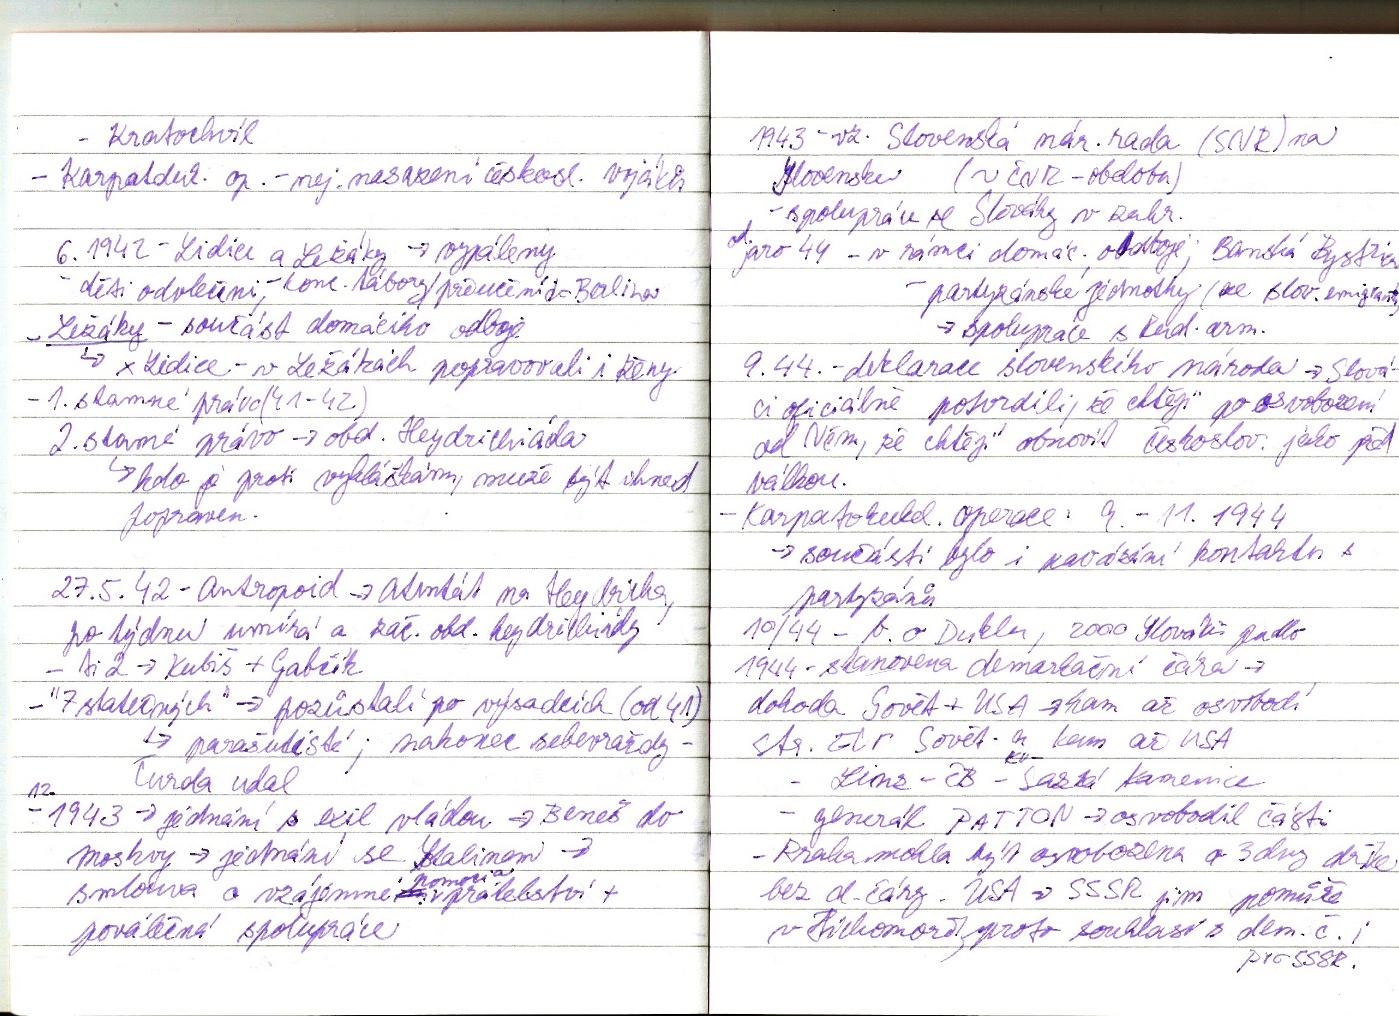 - Kratochvíl
- Karpatduk. op. - nej. nasazení českosl. vojáků
6. 1942 - Lidice a Ležáky → vypáleny
- děti odvlečeni, - konc. tábory, převýchova - Berlína
- Ležáky - součást domácího odboje
↳ x Lidice - v Ležákách popravovali i ženy
- 1. stanné právo (41-42)
2. stanné právo → obd. Heydrichiáda
↳ kdo je proti vyhláškám, může být ihned
popraven.
27.5.42 - Antropoid → Atentát na Heydricha,
po týdnu umírá a zač. obd. heydrichiády
- Ti 2 → Kubiš + Gabčík
- "7 statečných" → pozůstalí po výsadcích (od 41)
↳ parašutisté; nakonec sebevraždy -
Čurda udal
12.
- 1943 → jednání s exil vládou → Beneš do
Moskvy → jednání se Stalinem →
smlouva o vzájemné pomoci a přátelství +
poválečná spolupráce
1943 - vz. Slovenská nár. rada (SNR) na
Slovensku (~ ČNR - obdoba)
- spolupráce se Slováky v zahr.
od jaro 44 - v rámci domác. odboje; Bánská Bystrica
- partyzánské jednotky (ze slov. emigrantů
→ spolupráce s Rud. arm.
9. 44. - deklarace slovenského národa → Slová-
ci oficiálně potvrdili, že chtějí po osvobození
od Něm, že chtějí obnovit českoslov. jako před
válkou.
- Karpatodukel. operace: 9. - 11. 1944
→ součástí bylo i navázání kontaktu s
partyzánů
10/44 - b. o Duklu, 2000 Slováků padlo
1944 - stanovena demarkační čára →
dohoda Sovět + USA → kam až osvobodí
str. Sovět. a kam až USA
- Linz - ČB - KV - Saská Kamenice
- generál PATTON → osvobodil části
- Praha mohla být osvobozena o 3 dny dříve
bez d. čáry. USA → SSSR jim pomůže
v Tichomoří, proto souhlasí s dem. č. i
pro SSSR.